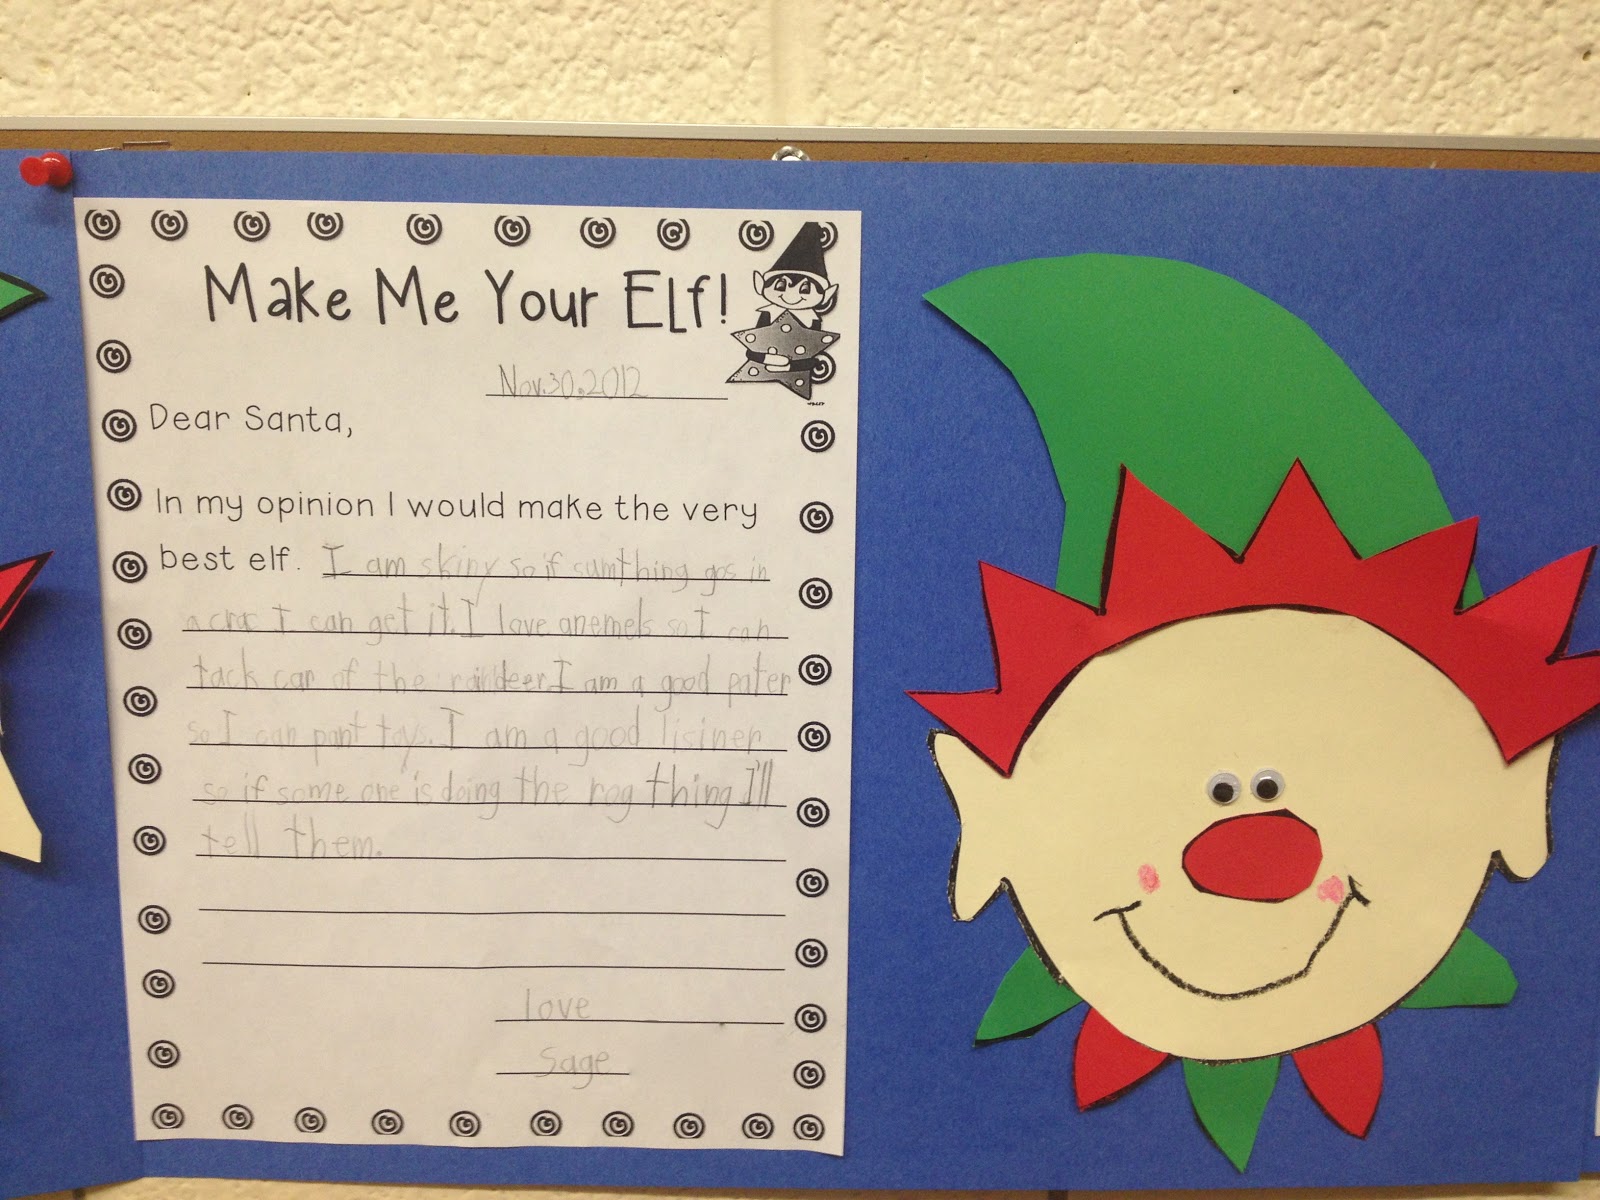 Make Me Your Elf!
Nov.30.2012
Dear Santa,
In my opinion I would make the very
best elf. I am skiny so if sumthing gos in
a crac I can get it. I love anemels so I can
tack car of the raindeer. I am a good pater
so I can pant toys. I am a good lisiner
so if some one is doing the rog thing I'll
tell them.
love
Sage